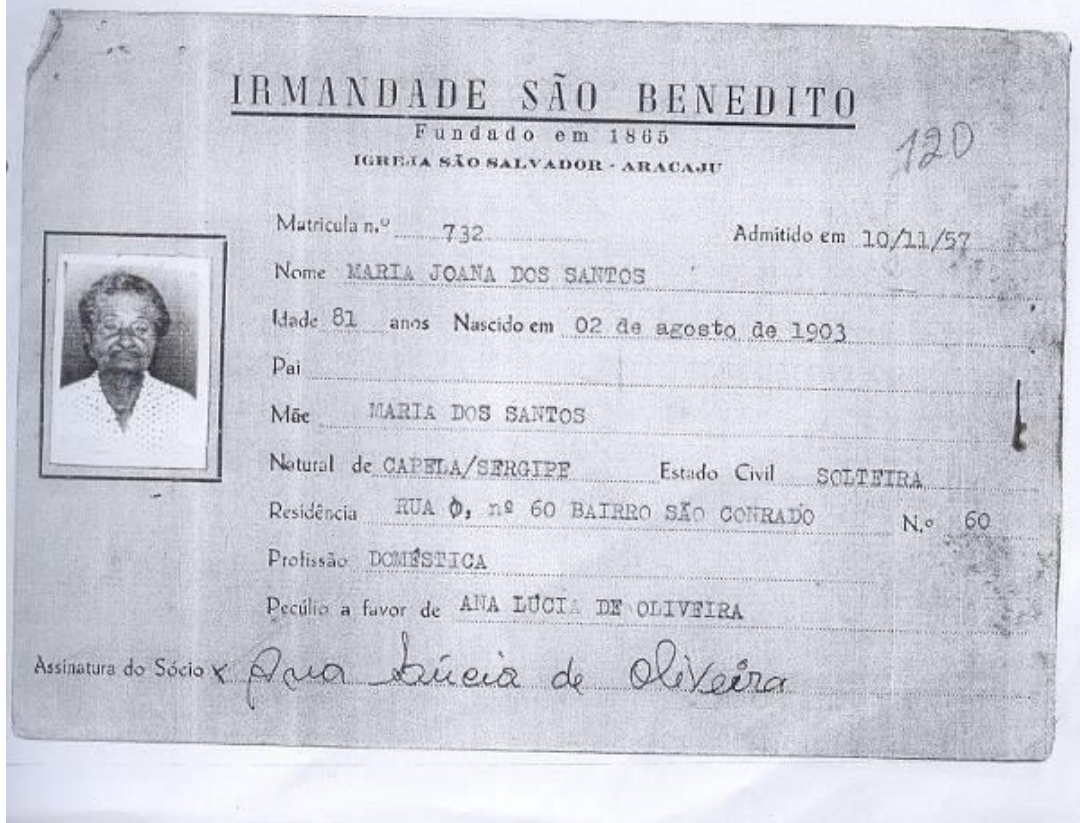 IRMANDADE SÃO BENEDITO
Fundado em 1865
IGREJA SÃO SALVADOR - ARACAJU
120
Matricula n.º 732 Admitido em 10/11/57
Nome MARIA JOANA DOS SANTOS
Idade 81 anos Nascido em 02 de agosto de 1903
Pai
Mãe MARIA DOS SANTOS
Natural de CAPELA/SERGIPE Estado Civil SOLTEIRA
Residência RUA , nº 60 BAIRRO SÃO CONRADO N.º 60
Profissão DOMÉSTICA
Pecúlio a favor de ANA LÚCIA DE OLIVEIRA
Assinatura do Sócio x Ana Lúcia de Oliveira